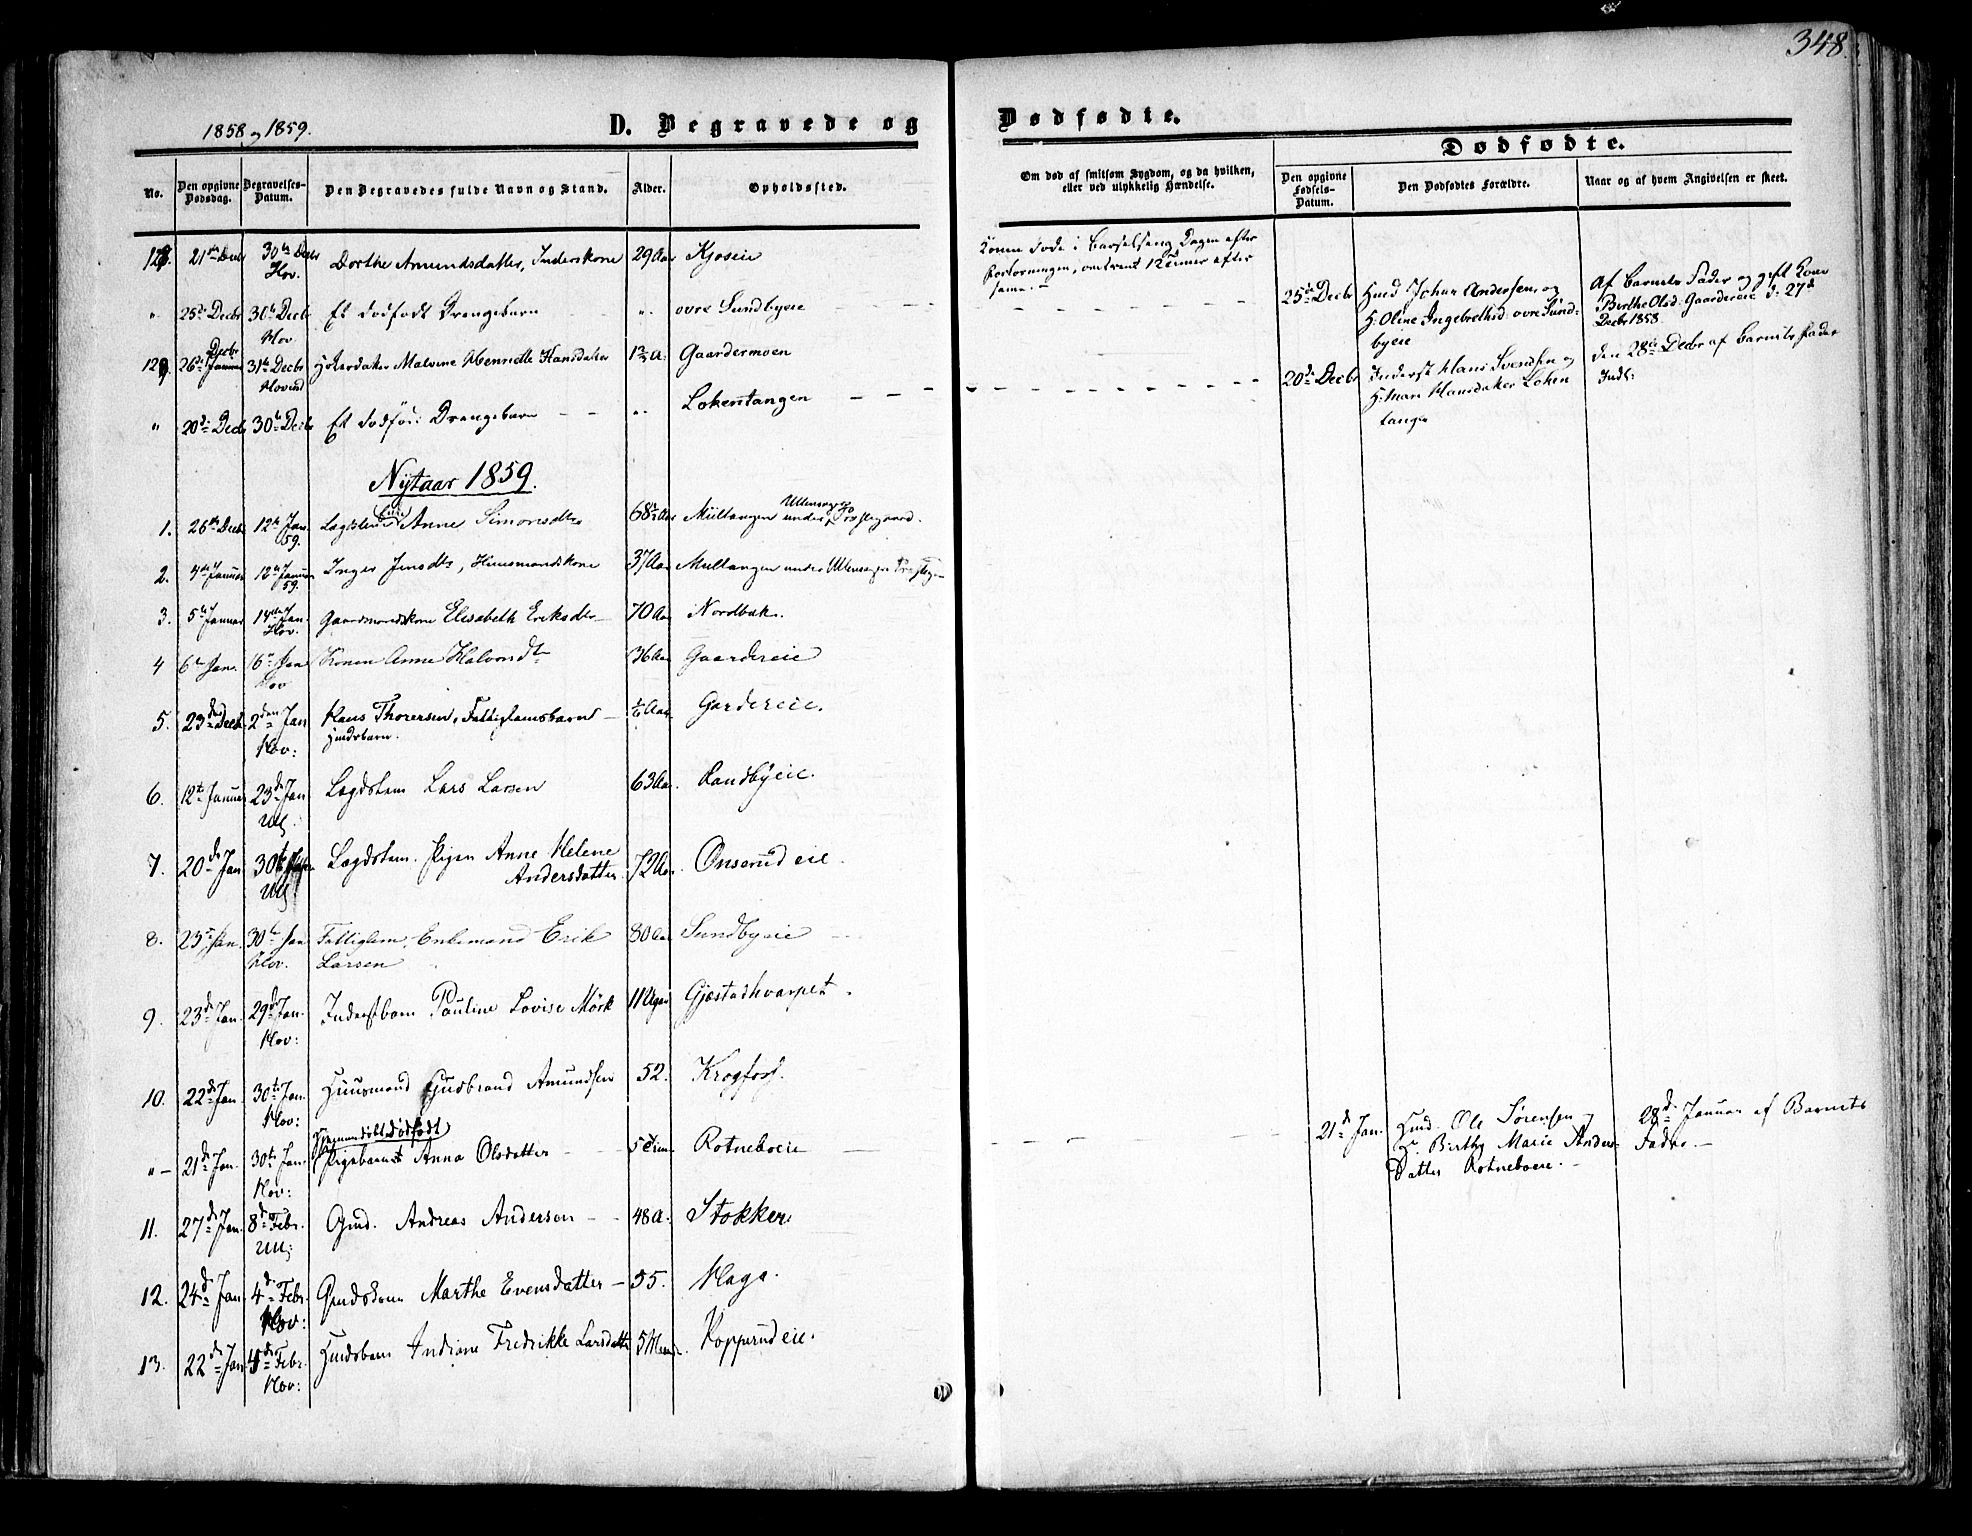 348
1858 og 1859.
D. Begravede og
Dødfødte.
Dødfødte.
No.
Den opgivne Dødsdag.
Begravelses-Datum.
Den Begravedes fulde Navn og Stand.
Alder.
Opholdssted.
Om død af smitsom Sygdom, og da hvilken,
eller ved ulykkelig Hændelse.
Den opgivne Fødsels-Datum.
Den Dødfødtes Forældre.
Naar og af hvem Angivelsen er skeet.
128. 21de Decbr 30te Decbr Dorthe Amundsdatter, Inderskone 29 Aar Kjoseie
Hov.
Konen døde i Barselseng Dagen efter
Forløsningen, omtrent 12 Timer efter
samme.
" 25de Decbr 30te Decbr Et dødfødt Drengebarn " øvre Sundbyeie
Hov
25de Decbr Husd Johan Andersen, og
H: Oline Ingebrethsd: øvre Sund-
byeie
Af Barnets Fader og gift Kone
Birthe Olsd: Gaardereie d: 27d
Decbr 1858.
129. 26de Decbr 31te Decbr Malvine Hennedte Hansdatter Gaardermoen
Hovind
" 20de Decbr 30te Decbr Et dødfød: Drengebarn " Løkentangen
20de Decbr Inderst Hans Svendsen og
H: Mari Hansdatter Løken
tangen
den 28de Decbr af Barnets Fader
Indst:
Nytaar 1859.
1. 26de Decbr 12te Jan Lægdslem Anne Simonsdtr 68½ Aar Multangen under Ullensager Præstegaard.
59.
2. 4de Januar 12te Januar Inger Jensdtr, Huusmandskone 37 Aar Multangen under Ullensager
59.
3. 5te Januar 14de Jan. Gaardmandskone Elisabeth Eriksdtr 70 Aar Nordbak.
Hov.
4 6te Jan. 16de Jan Konen Anne Halvorsdtr 36 Aar Gaardereie
Hov
5. 23de Decbr 2den Jan Hans Thorersen, Fattiglemsbarn Aar Gardereie.
Hov: Husdsbarn.
6. 12te Januar 23de Jan Lægdslem Lars Larsen 63 Aar. Randbyeie.
Ull.
7. 20de Jan 30te Lægdslem. Pigen Anne Helene 72 Aar. Onserud eie.
Ull Andersdatter.
8. 23de Jan. 30te Jan Fattiglem, Enkemand Erik 80 Aar Sundbyeie
Hov. Larsen
9. 23de Jan. 29de Jan. Inderstbarn Pauline Lovise Mörk 11 Uger Gjæstadhvarpet.
Hov:
10. 22de Jan. 30te Jan. Huusmand Gudbrand Amundsen 52. Krogfoss.
Hov: Hjemmedøbt dødfødt
" 21de Jan. 30te Jan. Pigebarnet Anna Olsdatter 5 Rotneboeie
Hov:
21de Jan. Husd. Ole Sørensen og
H. Birthe Marie Anders-
Datter Rotneboeie.
28de Januar af Barnets
Fader.
11. 27de Jan. 8de Febr. Gmd. Andreas Anderson 48 A. Stokker
Ull:
12. 24de Jan. 4de Febr. Gmdskone Marthe Evensdatter 55. Haga.
Hov:
13. 22de Jan 4de Febr. Husdsbarn Andrane Fredrikke Larsdatter 5 Maaneder. Kopperud eie.
Hov: